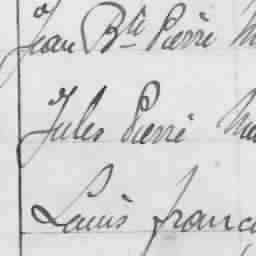 Jean Bte Pierre
Jules Pierre
Louis franc